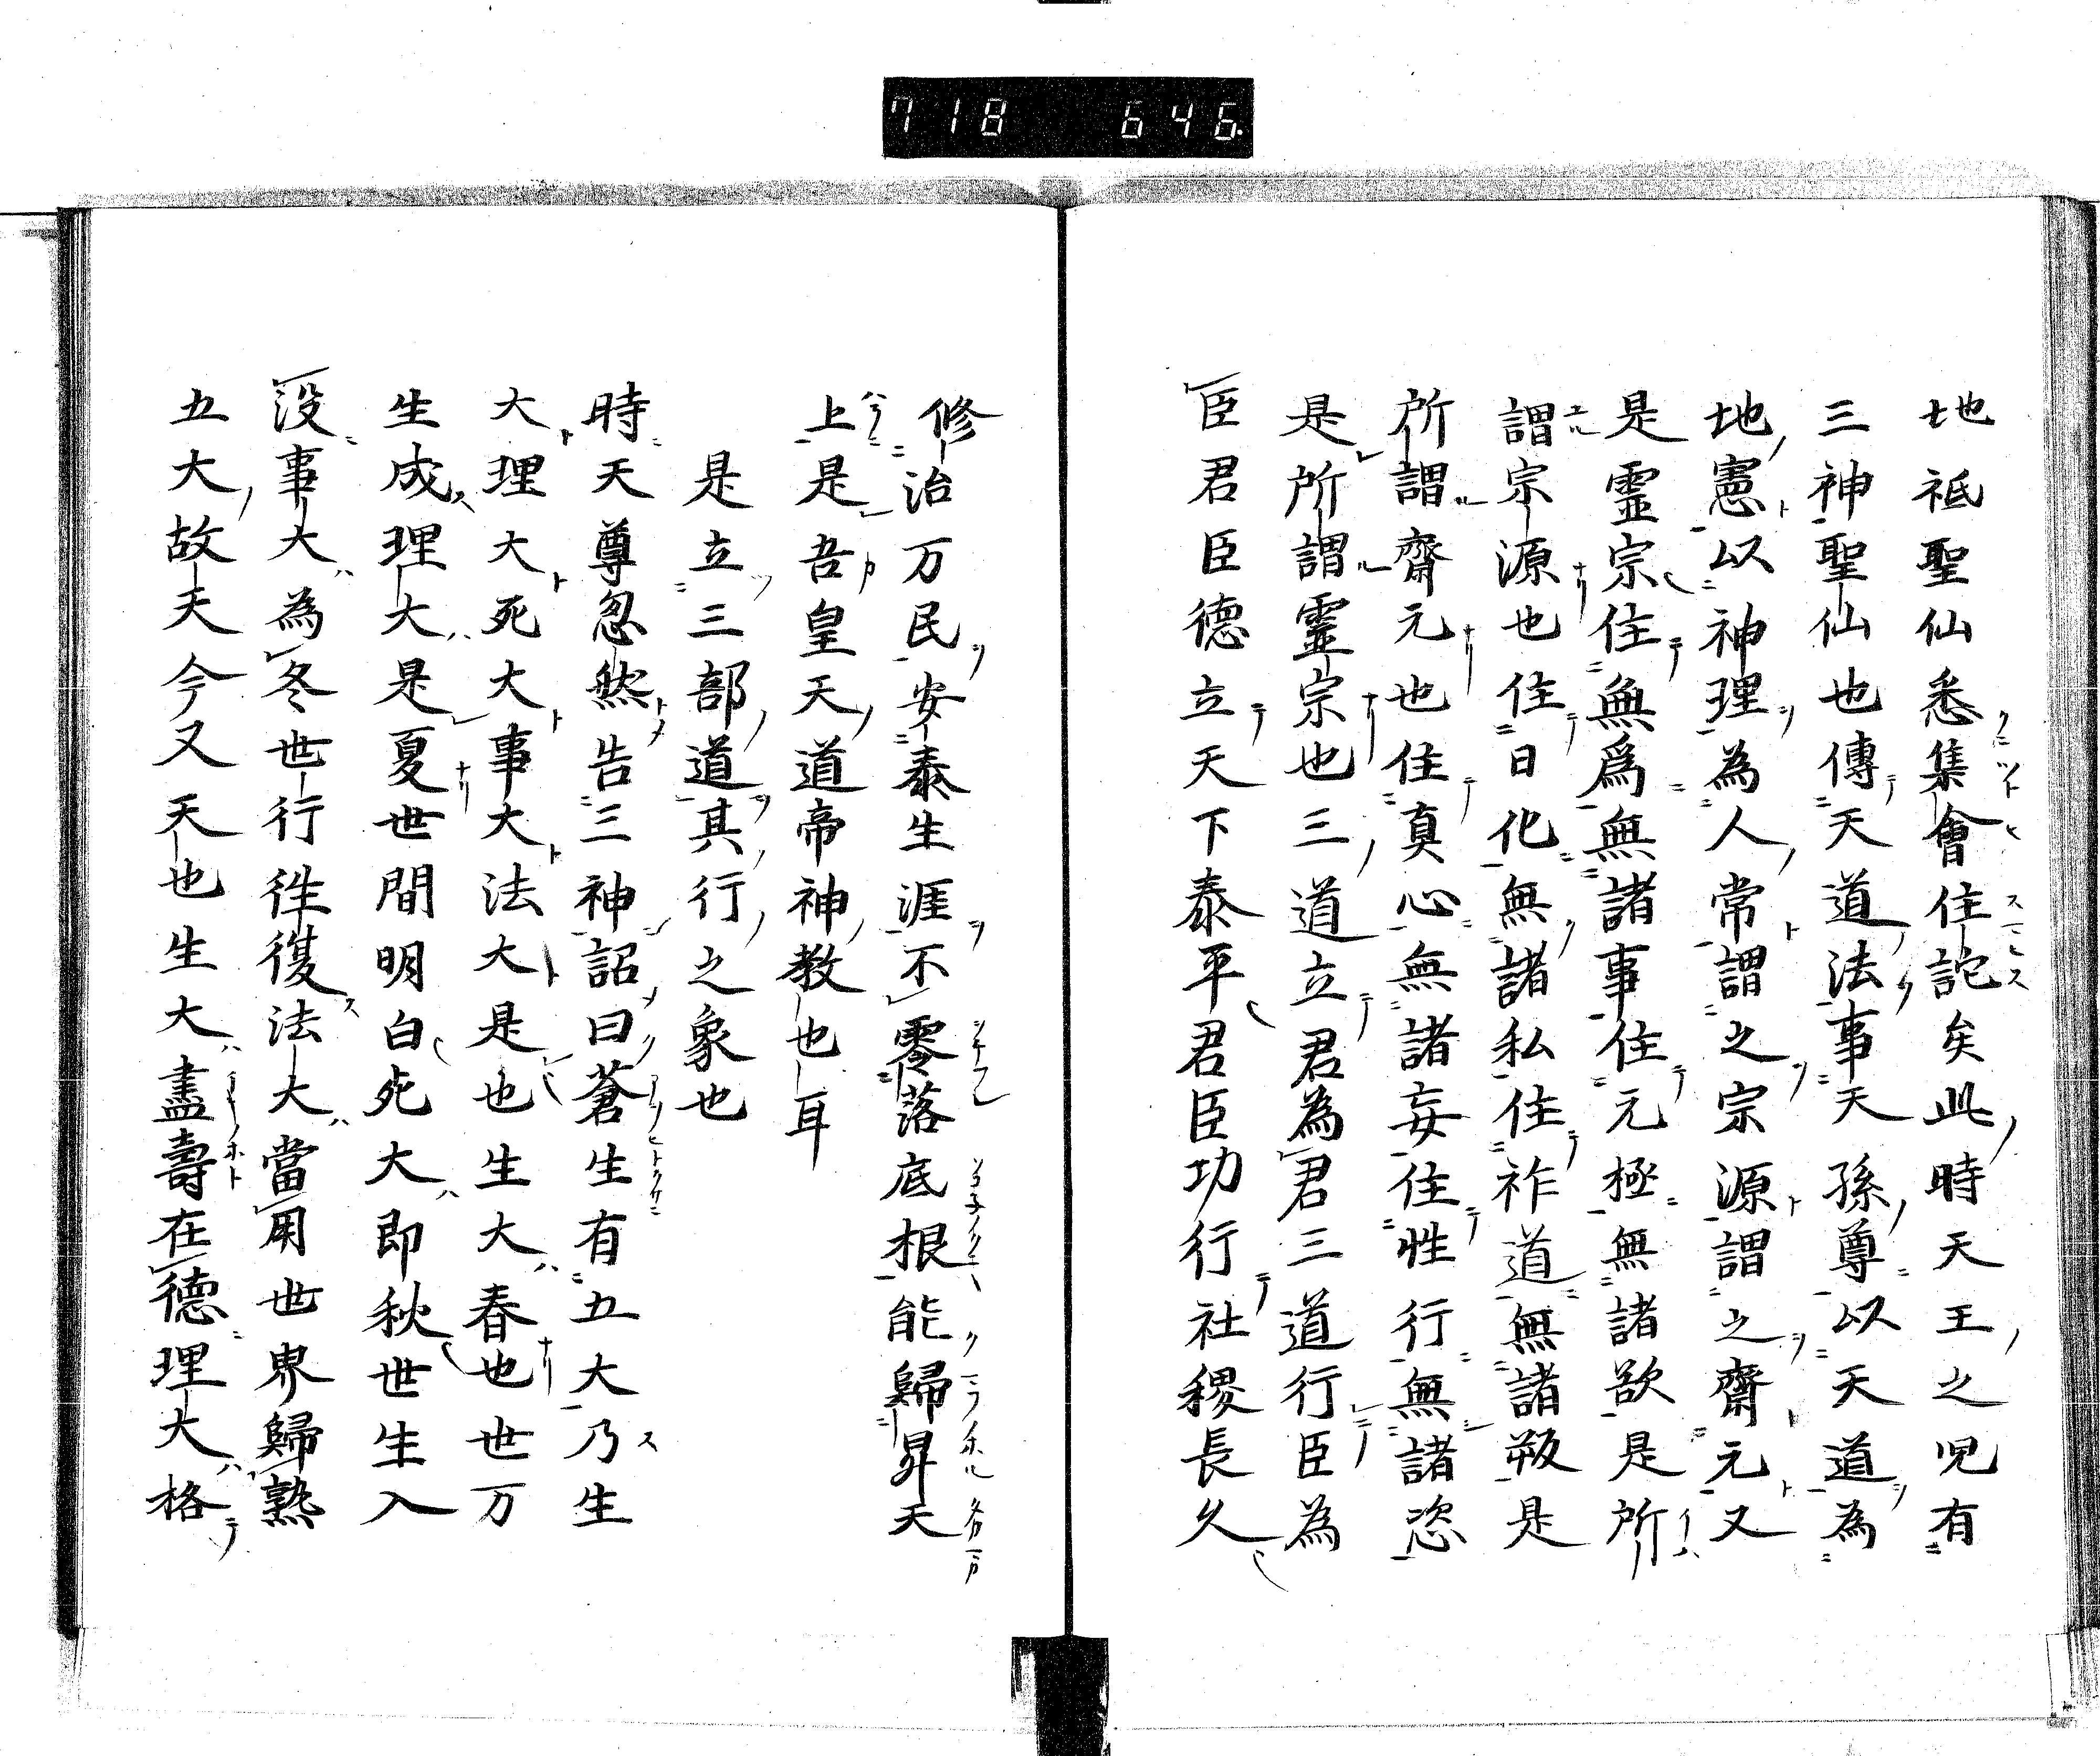 718 646
地祇聖仙悉集會住詑矣此時天王之児有
三神聖仙也傳天道法事天孫尊以天道為
地憲以神理為人常謂之宗源謂之齋元又
是霊宗住無爲無諸事住元極無諸欲是所
謂宗源也住日化無諸私住祚道無諸叛是
所謂齋元也住真心無諸妄住性行無諸恣
是所謂霊宗也三道立君為君三道行臣為
臣君臣德立天下泰平君臣功行社稷長久
修治万民安泰生涯不零落底根能歸昇天
上是吾皇天道帝神教也耳
是立三部道其行之象也
時天尊忽然告三神詔曰蒼生有五大乃生
大理大死大事大法大是也生大春也世万
生成理大是夏世間明白死大即秋世生入
没事大為冬世行徃復法大當用世界歸熟
五大故天今又天也生大盡壽在德理大格